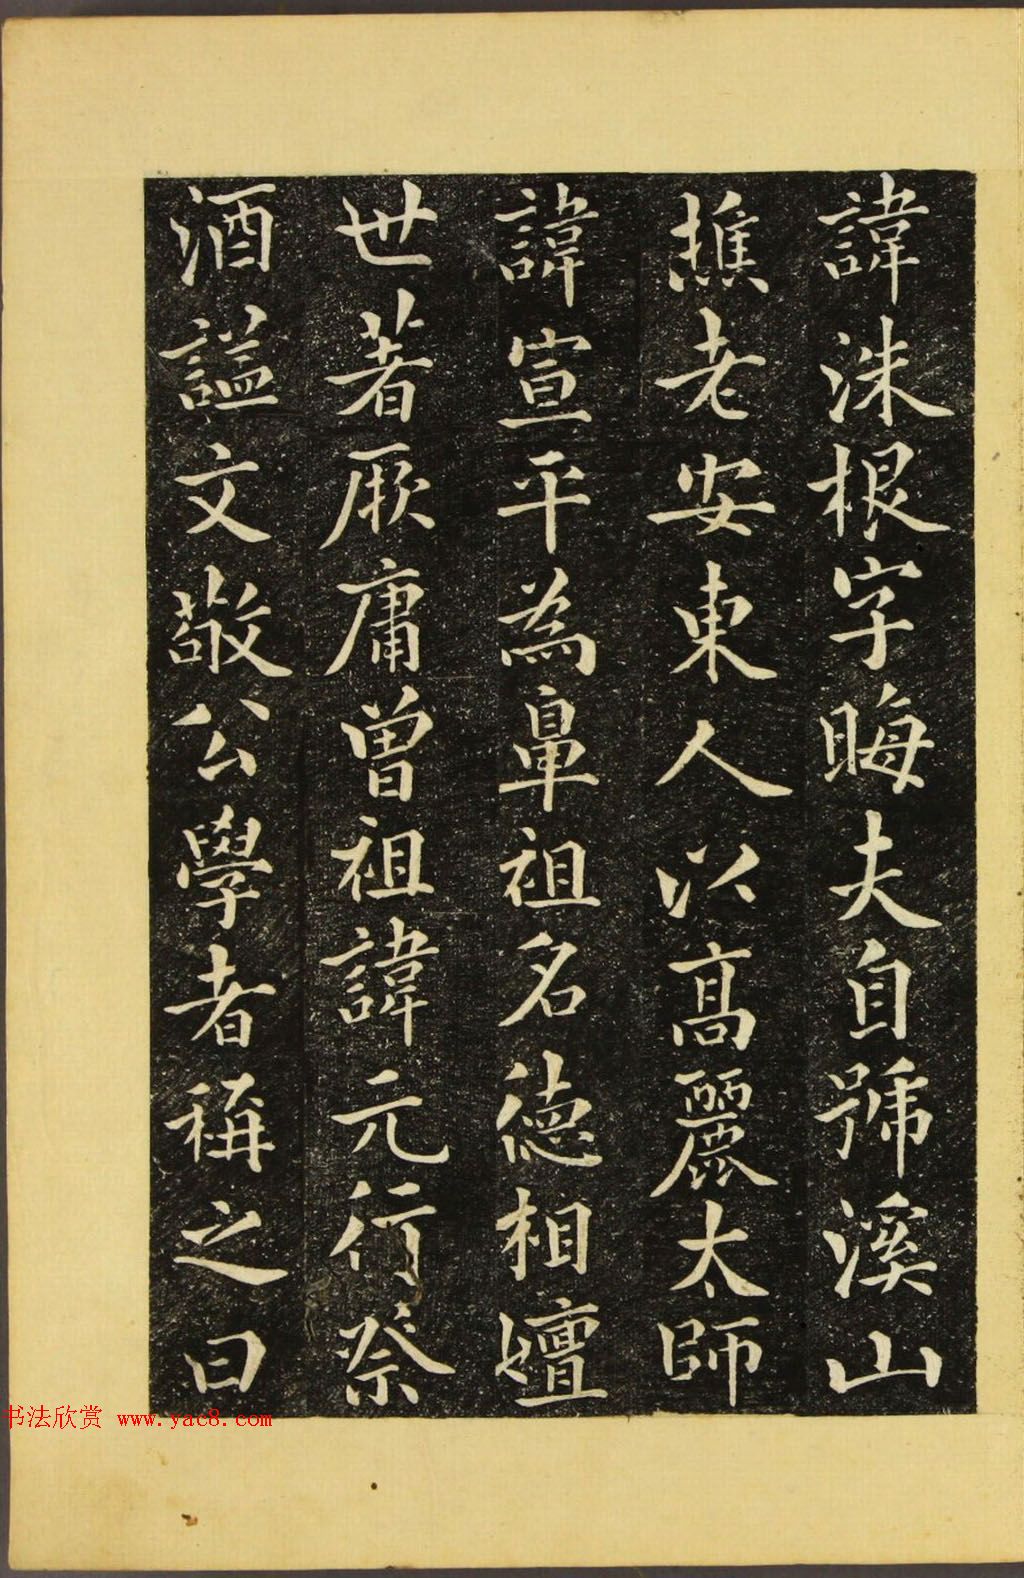 諱洙根字晦夫自號溪山
樵老安東人以高麗太師
諱宣平為鼻祖名德相嬗
世著厥庸曾祖諱元行祭
酒謚文敬公學者稱之曰
书法欣赏 www.yac8.com